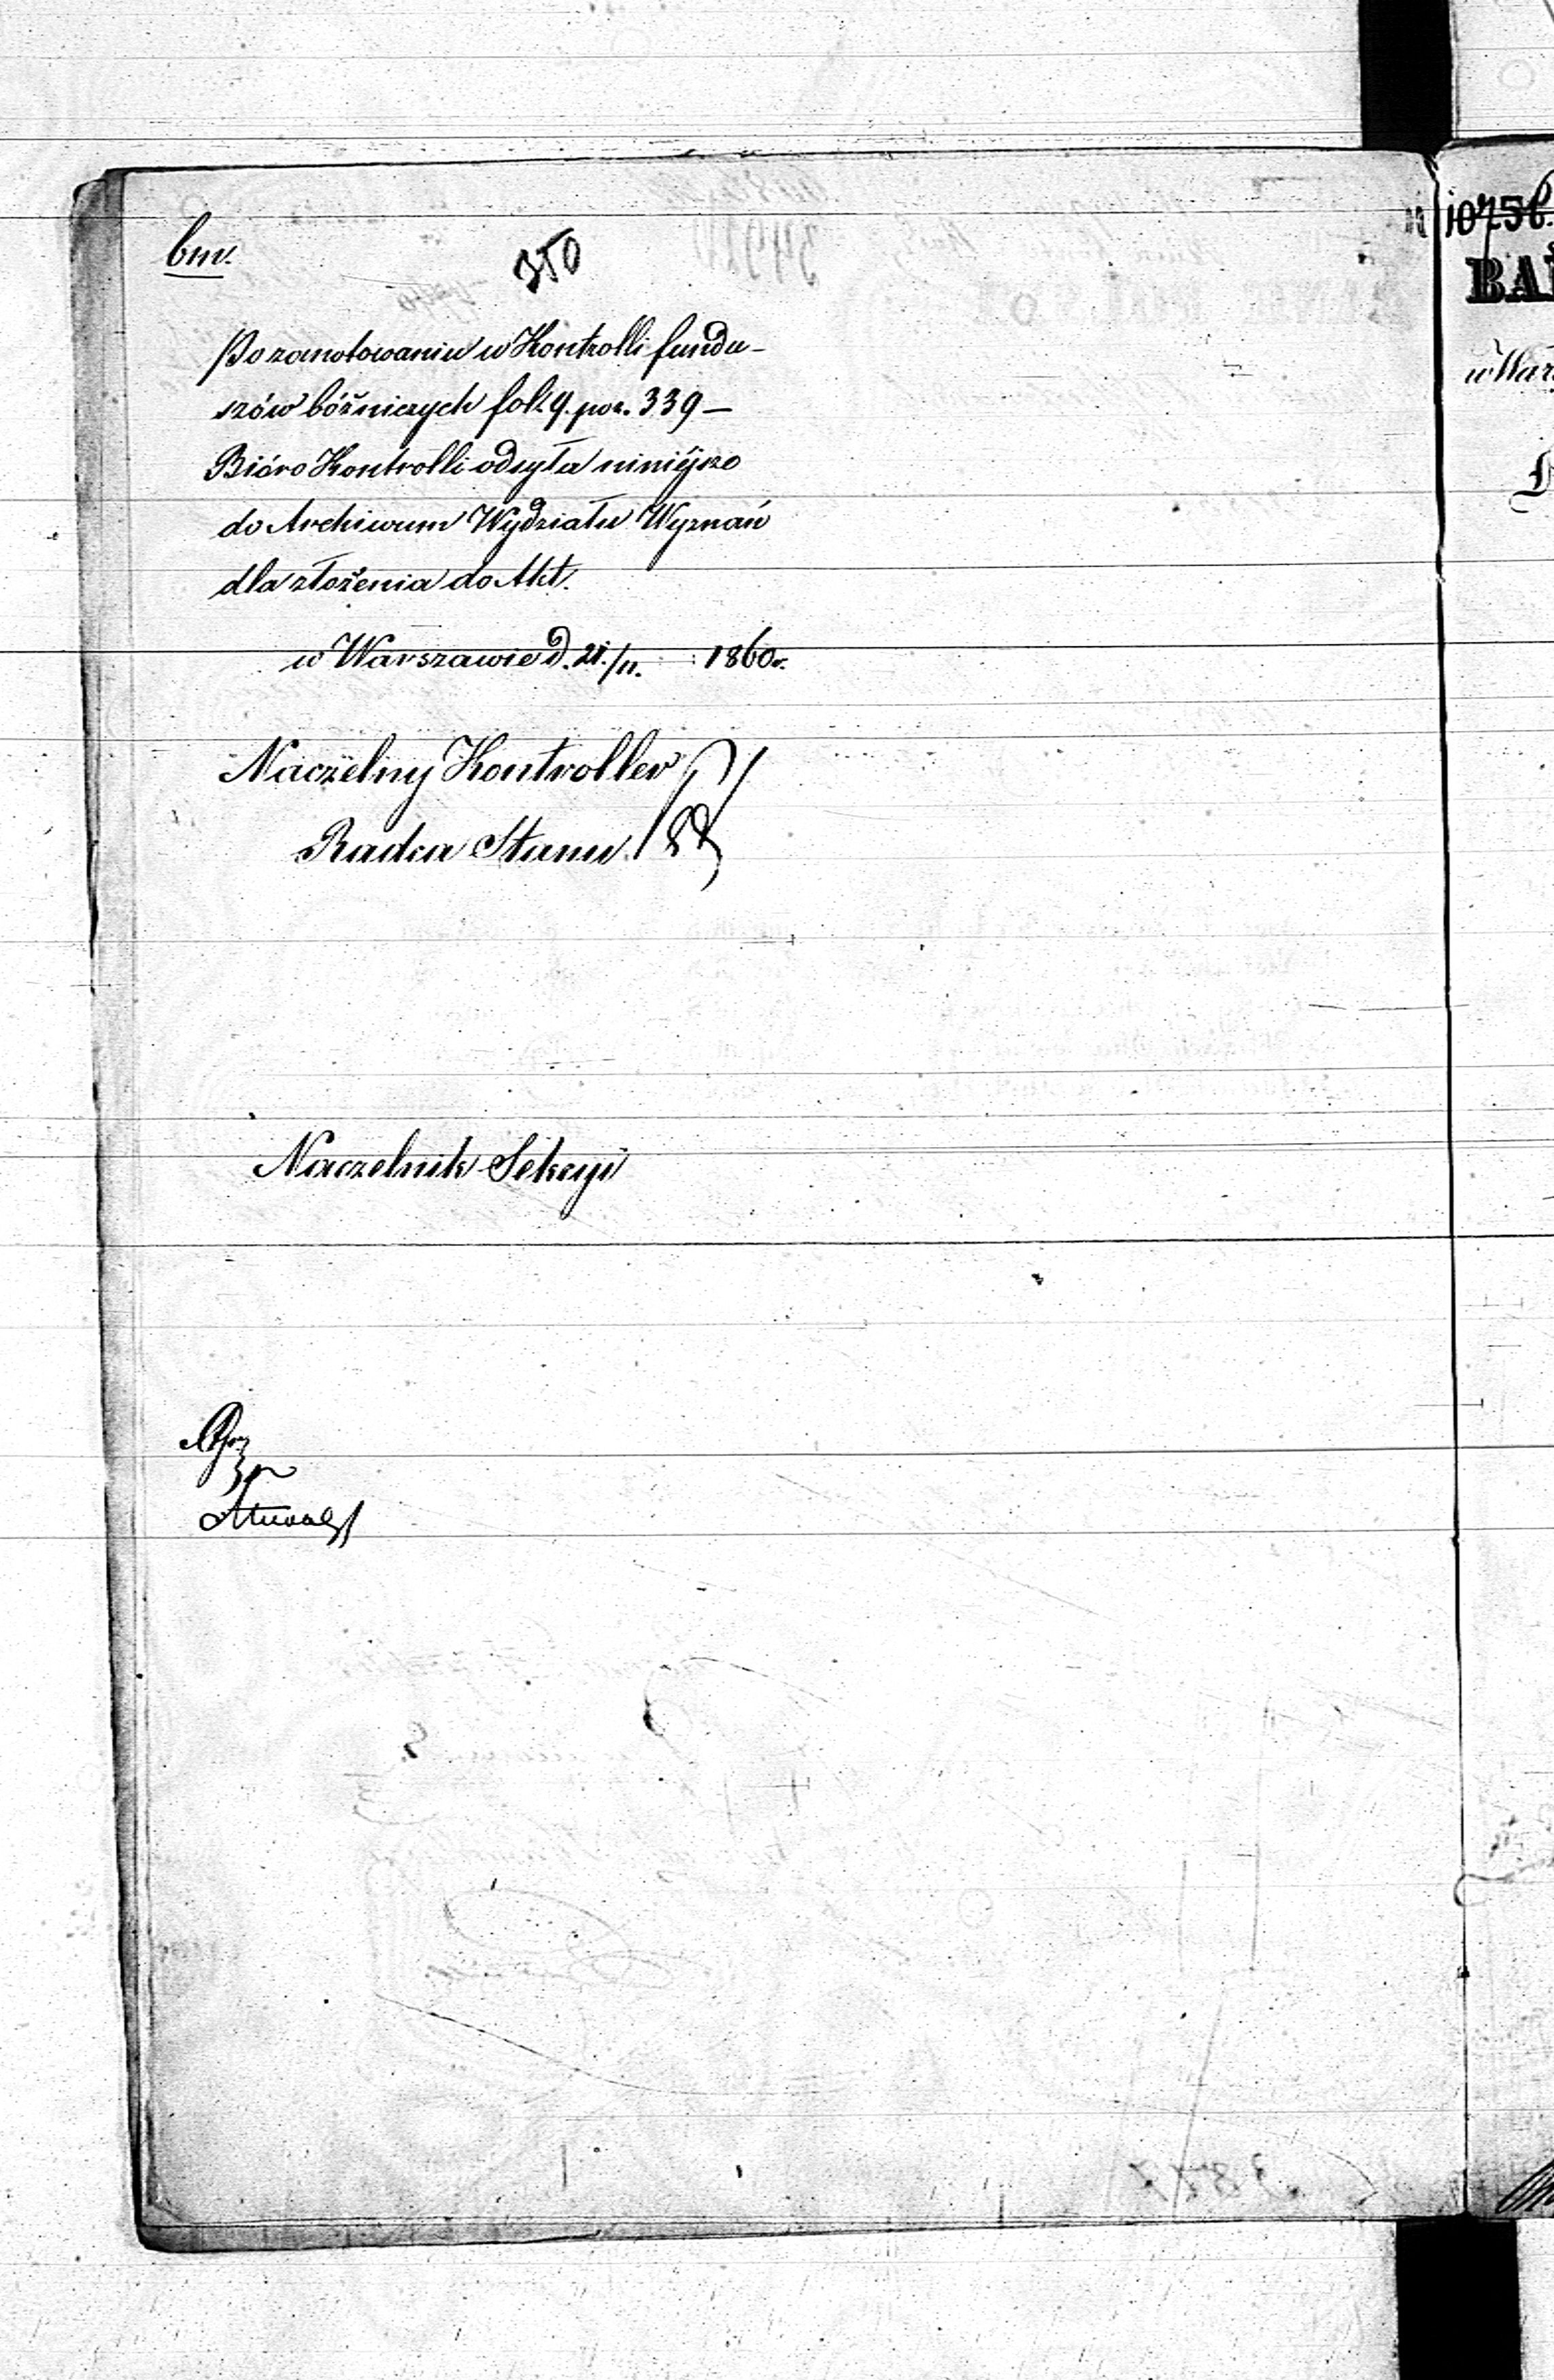 bm.
350
Po zanotowaniu w Kontrolli fundu-
szów bóżniczych fol. 9. poz. 339 —
Bióro Kontrolli odsyła niniéjsze
do Archiwum Wydziału Wyznań
dla złożenia do Akt.
w Warszawie d. 21./11. 1860 r.
Naczelny Kontroller
Radca Stanu
Naczelnik Sekcyi